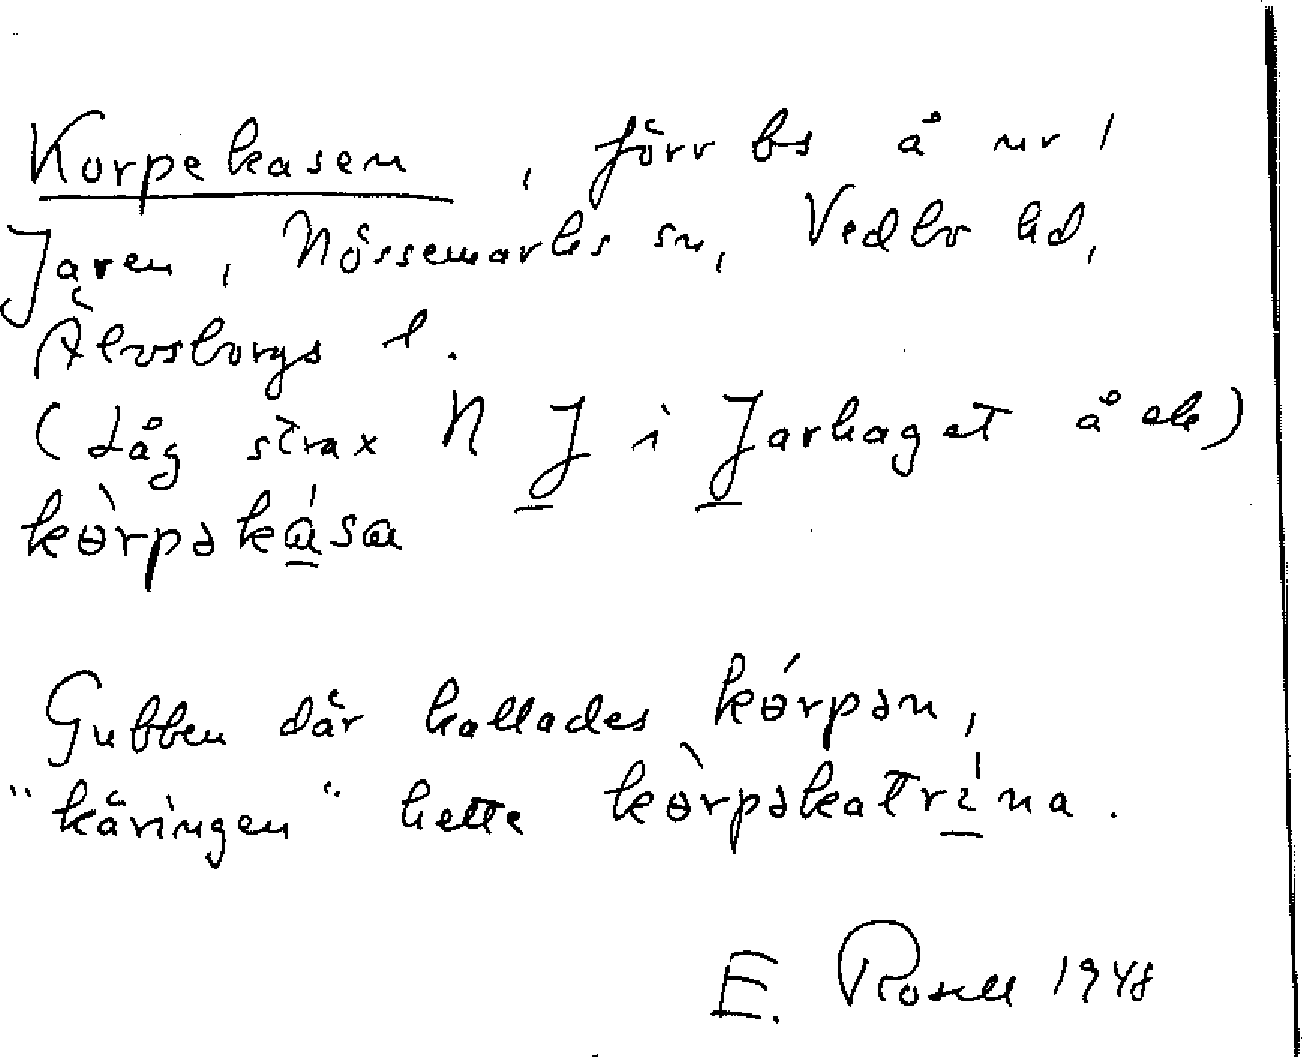 Korpekasen, förr bs å nr 1
Jaren, Nössemarks sn, Vedbo hd,
Älvsborgs l.
(Låg strax N J i Jarhaget å ek)
kɵ̀rpəkása
Gubben där kallades kɵ́rpən,
"käringen" hette kɵ̀rpəkatrína.
E. Rosell 1948